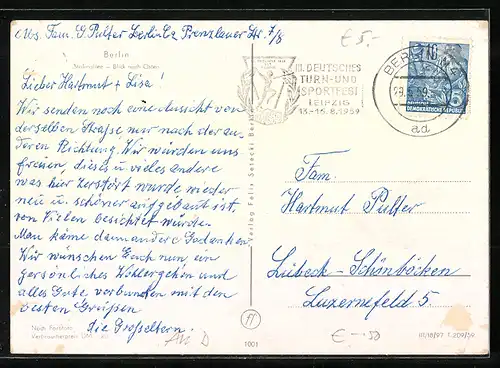 Abs. Fam. G. Pulter Berlin C2 Prenzlauer Str. 7/8
€ 5.-
Berlin
Blick nach Osten
Lieber Hartmut + Lisa!
Wir senden noch eine Ansicht von
derselben Straße nur nach der an-
deren Richtung. Wir würden uns
freuen, dieses u. vieles andere
was hier zerstört wurde wieder
neu u. schöner aufgebaut ist,
von Vielen besichtet würde.
Man käme dann andere Gedanken.
Wir wünschen Euch nun ein
persönliches Wohlergehn und
alles Gute verbunden mit den
besten Grüßen
die Großeltern.
Verlag Felix Setecki Berlin
III. DEUTSCHES
TURN- UND
SPORTFEST
LEIPZIG
13.-16.8.1959
BERLIN
ad
10
DEUTSCHE
DEMOKRATISCHE REPUBLIK
Fam.
Hartmut Pulter
Lübeck-Schönböcken
Luzernefeld 5
Nach Farbfoto
Verbraucherpreis DM
1001
III/18/97 T.209/59